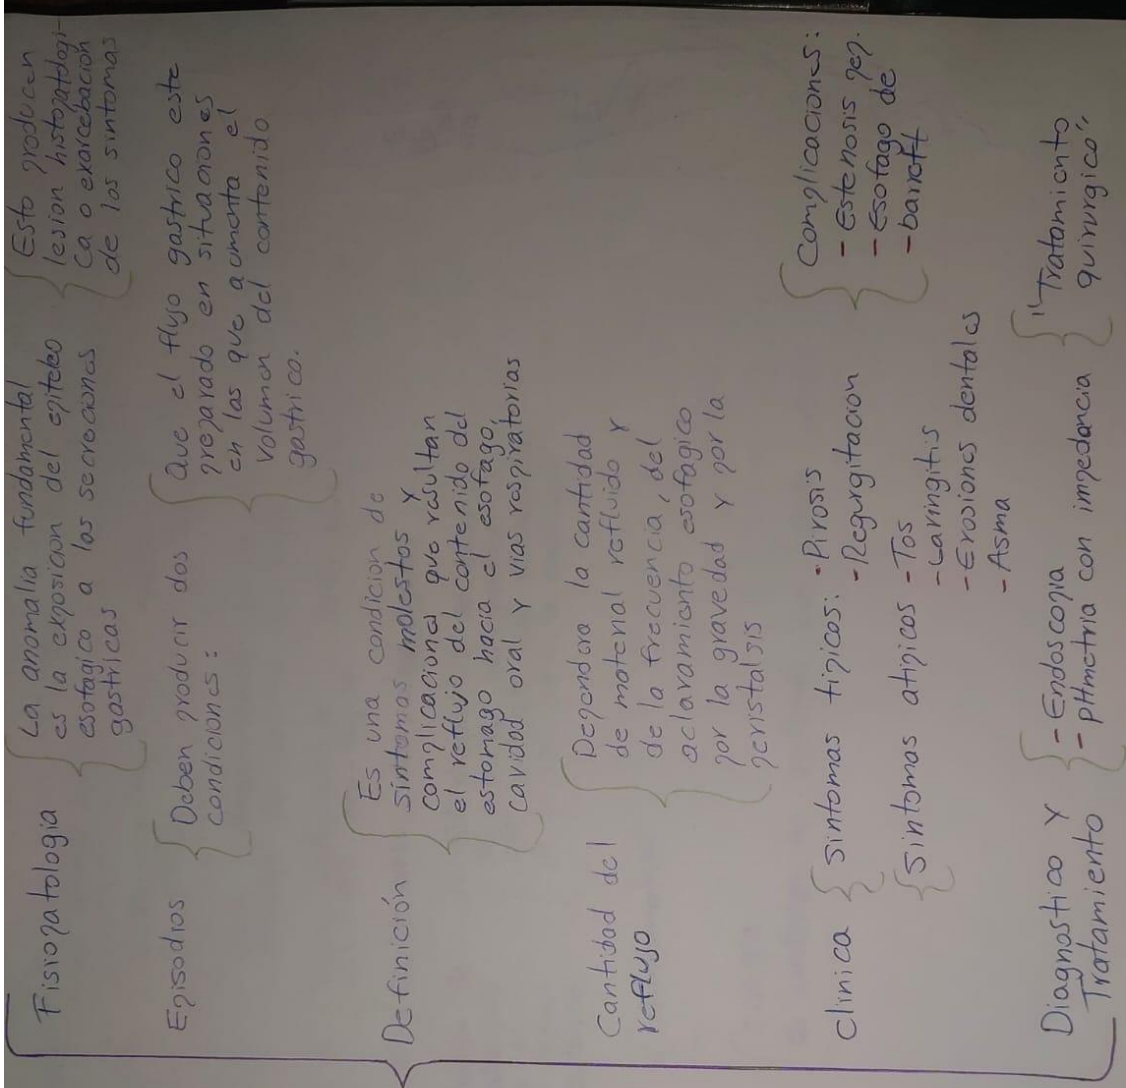 Fisiopatologia
La anomalia fundamental
es la exposicion del epiteleo
esofagico a las secreciones
gastricas
Esto producen
lesion histopatologi-
ca o exarcebación
de los sintomas
Episodios
Deben producir dos
condiciones:
Que el flujo gastrico este
preparado en situaciones
en las que aumenta el
volumen del contenido
gastrico.
Definición
Es una condicion de
sintomas molestos y
complicacional que resultan
el reflujo del contenido del
estomago hacia el esofago,
cavidad oral y vias respiratorias
Cantidad del
reflujo
Dependera la cantidad
de material refluido y
de la frecuencia, del
aclaramiento esofagico
por la gravedad y por la
peristalsis
clinica
Sintomas tipicos: - Pirosis
- Regurgitacion
Sintomas atipicos - Tos
- Laringitis
- Erosiones dentales
- Asma
Complicaciones:
- Estenosis pep.
- Esofago de
- barrett
Diagnostico y
Tratamiento
- Endoscopia
- pHmetria con impedancia
"Tratamiento
quirurgico"